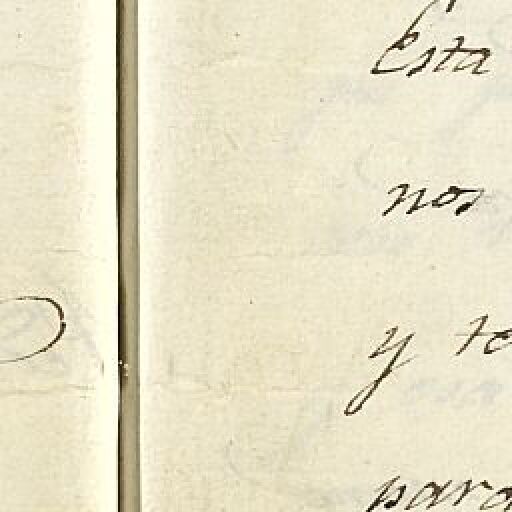 Esta
nos
y te
para